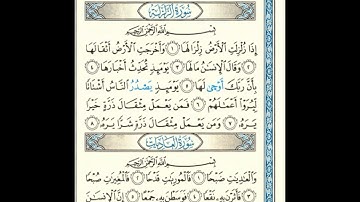 سُورَةُ الزَّلْزَلَةِ
بِسْمِ اللَّهِ الرَّحْمَٰنِ الرَّحِيمِ
إِذَا زُلْزِلَتِ الْأَرْضُ زِلْزَالَهَا ١ وَأَخْرَجَتِ الْأَرْضُ أَثْقَالَهَا
٢ وَقَالَ الْإِنسَٰنُ مَا لَهَا ٣ يَوْمَئِذٍ تُحَدِّثُ أَخْبَارَهَا ٤
بِأَنَّ رَبَّكَ أَوْحَىٰ لَهَا ٥ يَوْمَئِذٍ يَصْدُرُ النَّاسُ أَشْتَاتًا
لِّيُرَوْا أَعْمَٰلَهُمْ ٦ فَمَن يَعْمَلْ مِثْقَالَ ذَرَّةٍ خَيْرًا
يَرَهُ ٧ وَمَن يَعْمَلْ مِثْقَالَ ذَرَّةٍ شَرًّا يَرَهُ ٨
سُورَةُ الْعَادِيَاتِ
بِسْمِ اللَّهِ الرَّحْمَٰنِ الرَّحِيمِ
وَالْعَٰدِيَٰتِ ضَبْحًا ١ فَالْمُورِيَٰتِ قَدْحًا ٢ فَالْمُغِيرَٰتِ صُبْحًا
٣ فَأَثَرْنَ بِهِ نَقْعًا ٤ فَوَسَطْنَ بِهِ جَمْعًا ٥ إِنَّ الْإِنسَٰنَ